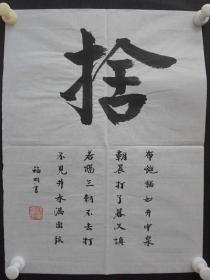 捨
布施猶如井中泉
朝晨打了暮又填
若隔三朝不去打
不見井水湧出弦